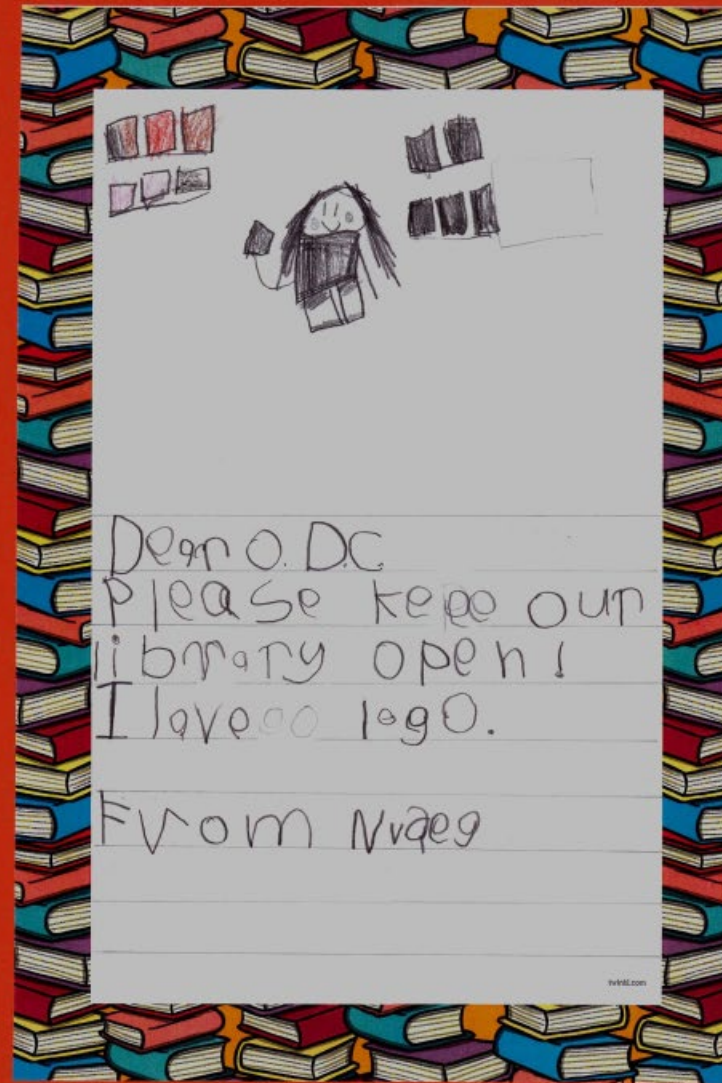 Dear O.D.C
Please kepe our
library open!
I love lego.
From
twinkl.com